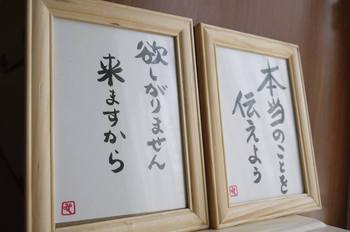 本当のことを
伝えよう
欲しがりません
来ますから